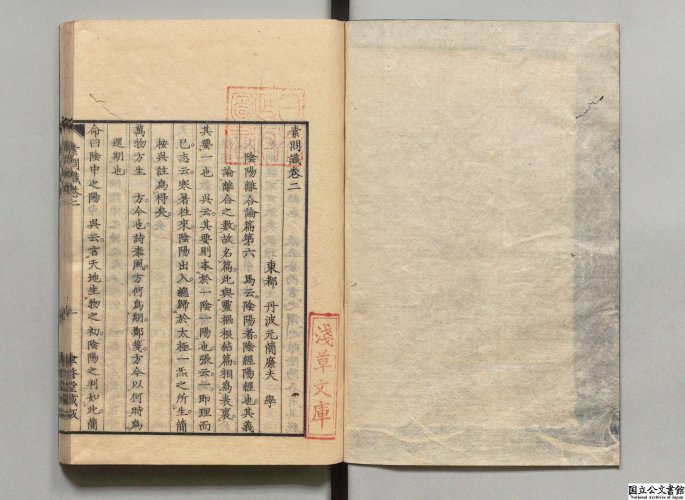 素問識卷二
東都 丹波元簡廉夫 學
陰陽離合論篇第六 馬云陰陽者陰經陽經也其義
論離合之數故名篇此與靈樞根結篇相爲表裏
其要一也 吳云其要則本於一陰一陽也張云一即理而
已志云寒暑往來陰陽出入總歸於太極一炁之所生簡
按吳註爲得矣
萬物方生 方今也詩秦風方何爲期鄭箋方今以何時爲
還期也
命曰陰中之陽 吳云言天地生物之初陰陽之判如此簡
素問識卷二
淺草文庫
国立公文書館
National Archives of Japan